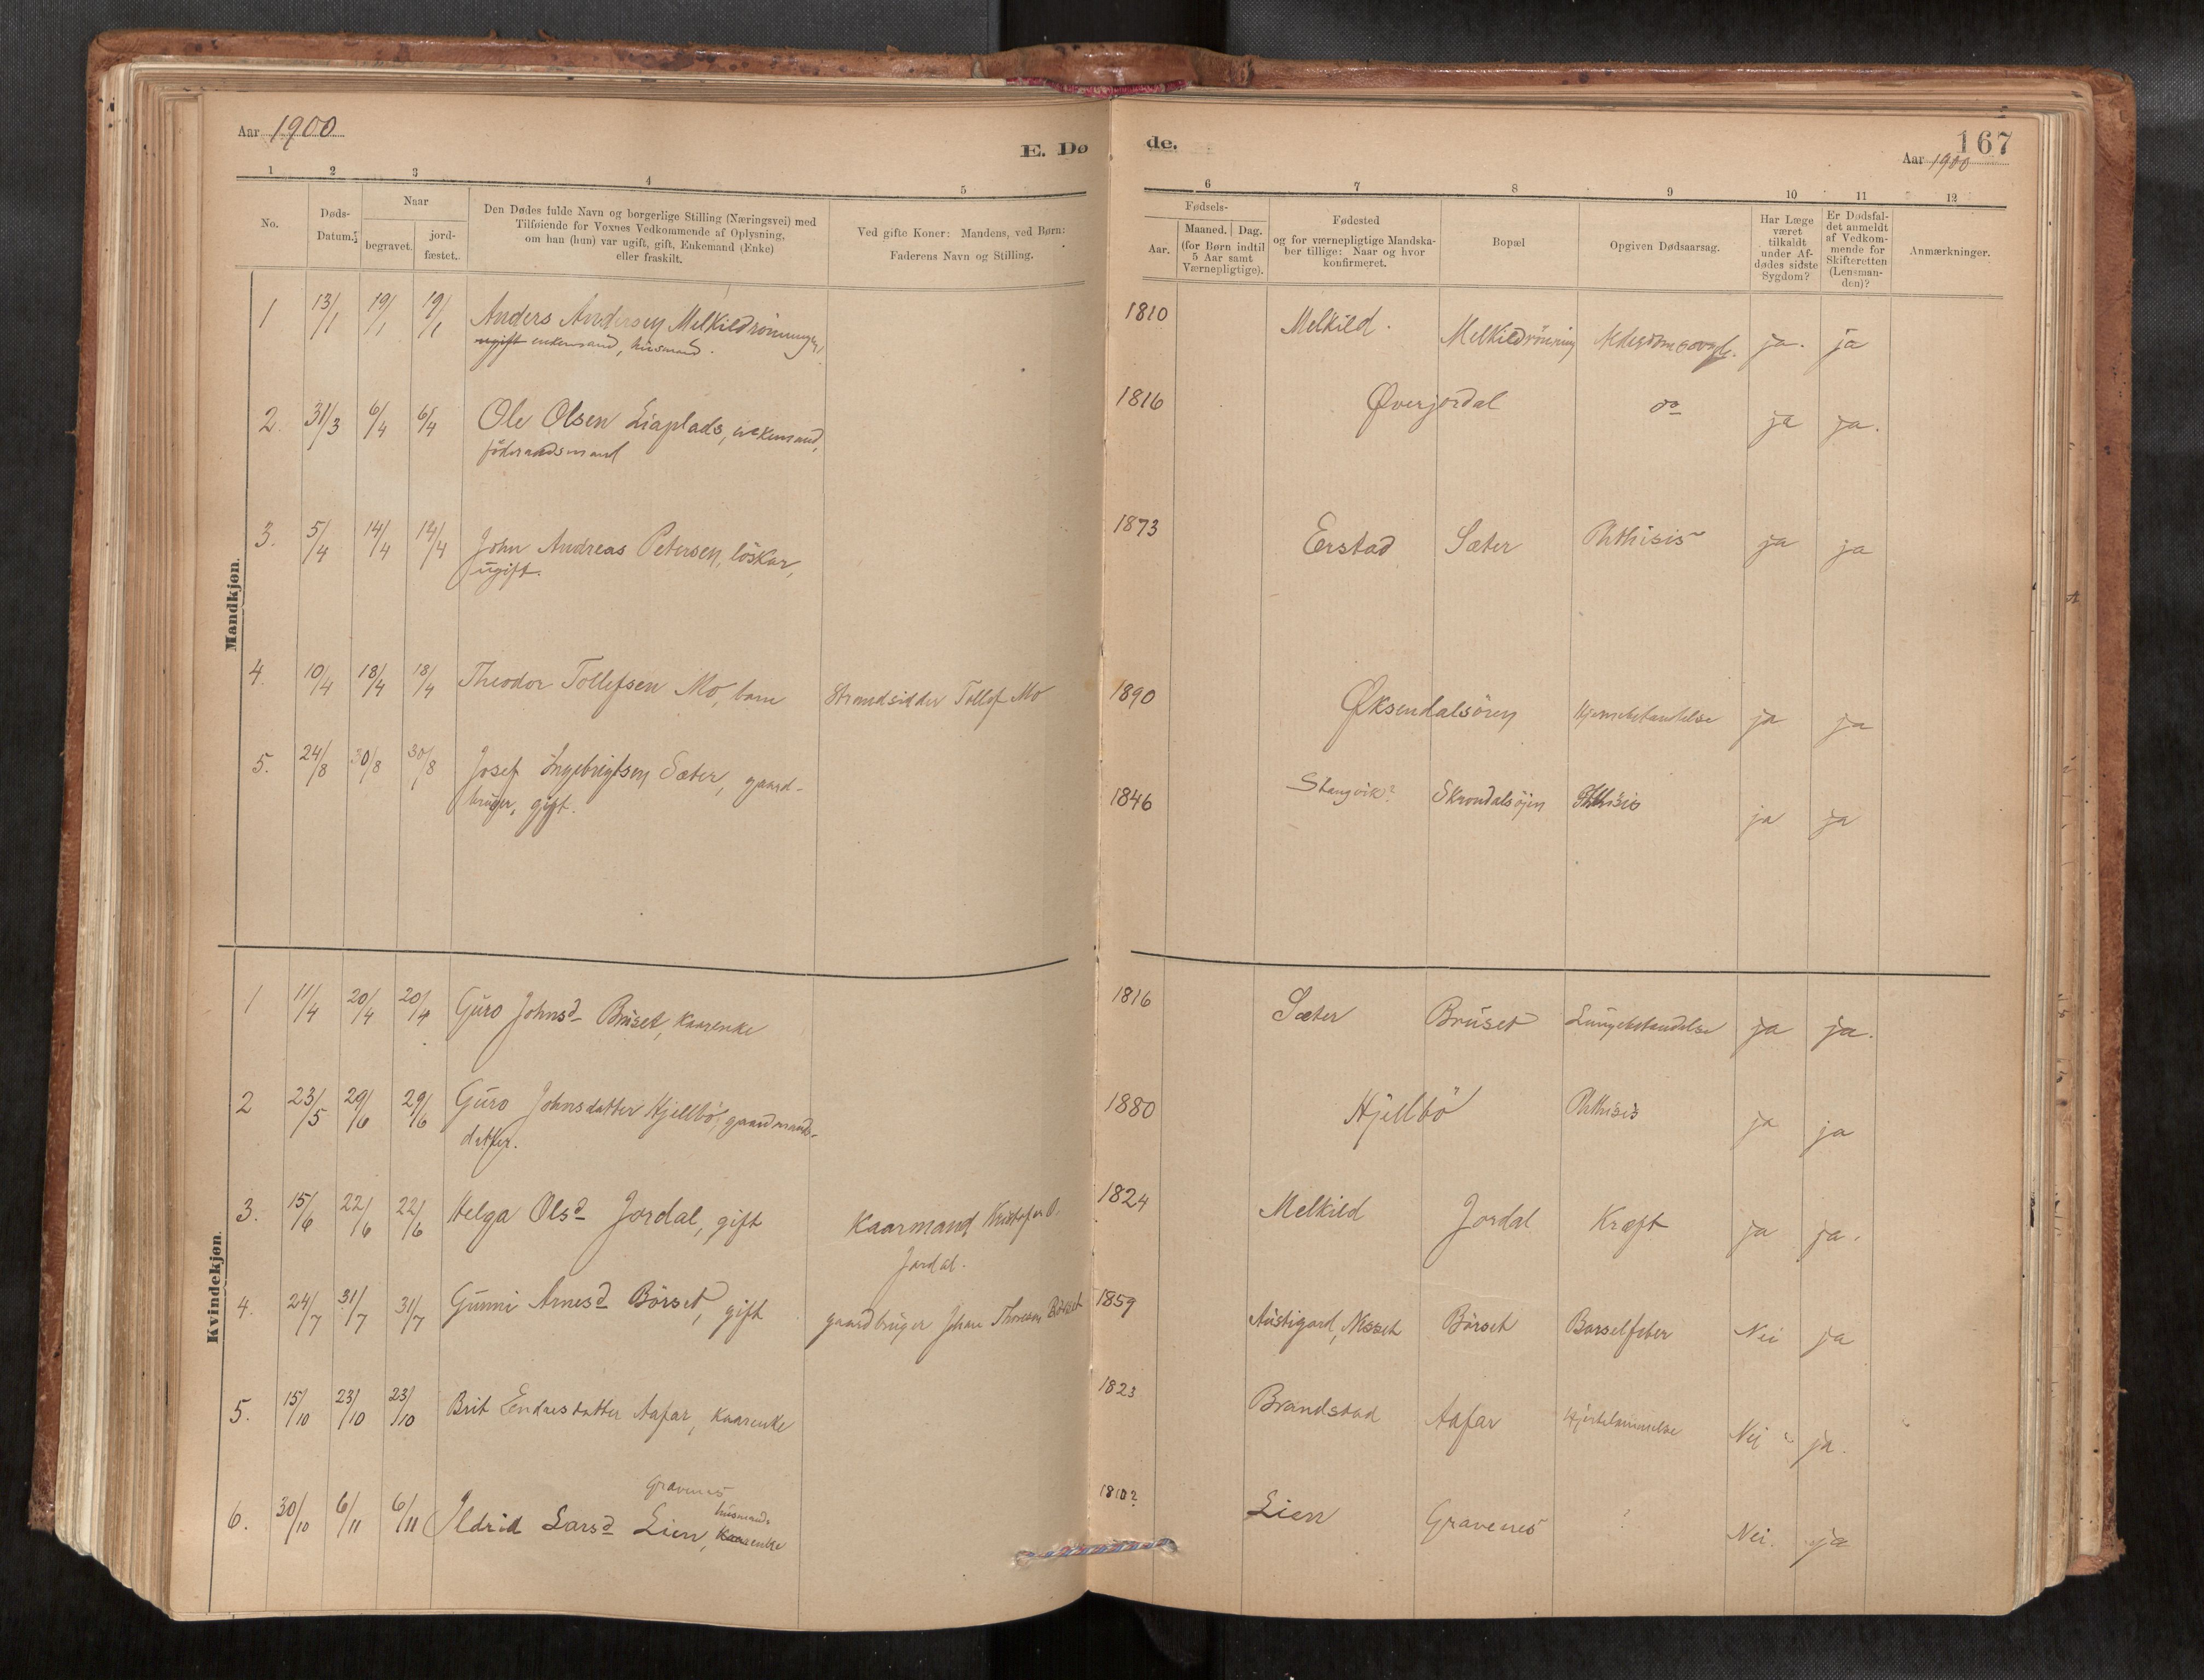 Aar 1900
E. Dø
de.
167
Aar 1900
1 2 3 4 5 6 7 8 9 10 11 12
No.
Døds-
Datum.
Naar
begravet.
jord-
fæstet.
Den Dødes fulde Navn og borgerlige Stilling (Næringsvei) med
Tilføiende for Voxnes Vedkommende af Oplysning,
om han (hun) var ugift, gift, Enkemand (Enke)
eller fraskilt.
Ved gifte Koner: Mandens, ved Børn:
Faderens Navn og Stilling.
Fødsels-
Aar.
Maaned. Dag.
(for Børn indtil
5 Aar samt
Værnepligtige).
Fødested
og for værnepligtige Mandska-
ber tillige: Naar og hvor
konfirmeret.
Bopæl
Opgiven Dødsaarsag.
Har Læge
været
tilkaldt
under Af-
dødes sidste
Sygdom?
Er Dødsfal-
det anmeldt
af Vedkom-
mende for
Skifteretten
(Lensman-
den)?
Anmærkninger.
Mandkjøn.
1 13/1 19/1 19/1 Anders Andersen Melkildrønningen, 1810 Melkild. Melkildrönning ja. ja
ugift enkemand, husmand.
2. 31/3 6/4 6/4 Ole Olsen Liaplads, enkemand, 1816 Øverjordal do ja ja.
föderaadsmand
3. 5/4 14/4 14/4 John Andreas Petersen, löskar, 1873 Erstad Sæter Phthisis ja ja
ugift.
4. 10/4 18/4 18/4 Theodor Tollefsen Mo, barn Strandsidder Tollef Mo 1890 Øksendalsören Hjernebetændelse ja ja
5. 24/8 30/8 30/8 Josef Ingebrigtsen Sæter, gaard- 1846 Stangvik? Skrondalsöjen Phthisis ja ja
bruger, gift.
Kvindekjøn.
1 11/4 20/4 20/4 Guro Johnsd Bruset, kaarenke 1816 Sæter Bruset Lungebetændelse ja ja.
2 23/5 29/6 29/6 Guro Johnsdatter Hjellbö, gaardmands- 1880 Hjellbö Phthisis ja ja
datter.
3. 15/6 22/6 22/6 Helga Olsd Jordal, gift Kaarmand Kristofer O. 1824 Melkild Jordal Kræft ja ja.
Jordal.
4. 24/7 31/7 31/7 Gunni Arnesd Börset, gift gaardbruger Johan Thoresen Börset 1859 Austigard, Nesset Börset Barselfeber Nei ja
5. 15/10 23/10 23/10 Brit Endresdatter Aafar, kaarenke 1823 Brandstad Aafar Hjertelammelse Nei ja.
Gravenes
husmands
6. 30/10 6/11 6/11 Ildrid Larsd Lien, Kaarenke 1810? Lien Gravenes ? Nei. ja